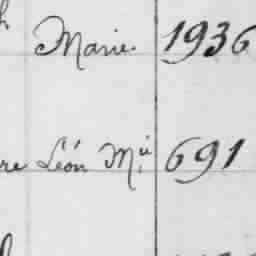 Marie. 1936
re Léon Mⁱᵉ 691